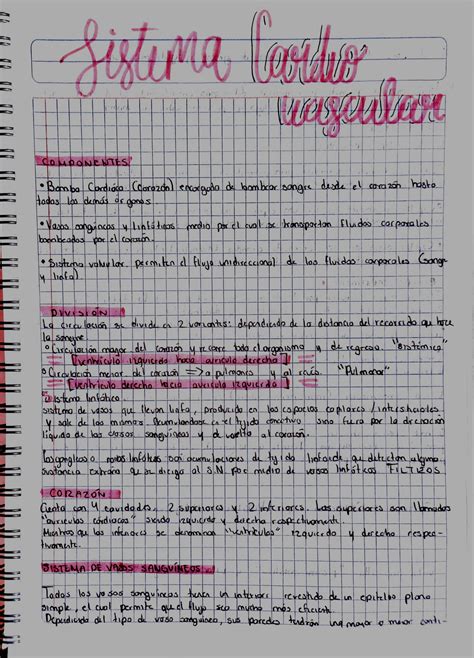 Sistema Cardio
vascular
COMPONENTES
• Bomba Cardiaca (Corazón) encargada de bombear sangre desde el corazón hasta
todos los demás órganos.
• Vasos sanguíneos y linfáticos medio por el cual se transportan fluidos corporales
bombeados por el corazón.
• Sistema valvular. permiten el flujo unidireccional de los fluidos corporales (sangre
y linfa)
DIVISIÓN
La circulación se divide en 2 variantes: dependiendo de la distancia del recorrido que hace
la sangre
○ Circulación mayor del corazón y recorre todo el organismo y de regreso. "Sistémica"
[ventrículo izquierdo hacia aurícula derecha]
○ Circulación menor del corazón => a pulmones y al "Pulmonar"
[ventrículo derecho hacia aurícula izquierda]
Sistema linfático.
sistema de vasos que llevan linfa, producida en los espacios / intersticiales
y sale de los mismos acumulandose en el tejido conectivo
líquida de los vasos sanguíneos y de vuelta al corazón.
Los ganglios o nodos linfáticos son acumulaciones de tejido linfoide que detectan alguna
sustancia extraña que se dirige al S.N por medio de vasos linfáticos FILTROS
CORAZÓN
Cuenta con 4 cavidades, 2 superiores y 2 inferiores. Las superiores son llamadas
"aurículas cardiacas" siendo izquierda y derecha respectivamente.
Mientras que las inferiores se denominan "ventrículos" izquierdo y derecho respec-
tivamente.
SISTEMA DE VASOS SANGUÍNEOS.
Todos los vasos sanguíneos tienen un interior revestido de un epitelio plano
simple, el cual permite que el flujo sea mucho más eficiente.
Dependiendo del tipo de vaso sanguíneo, sus paredes tendrán una mayor o menor canti-